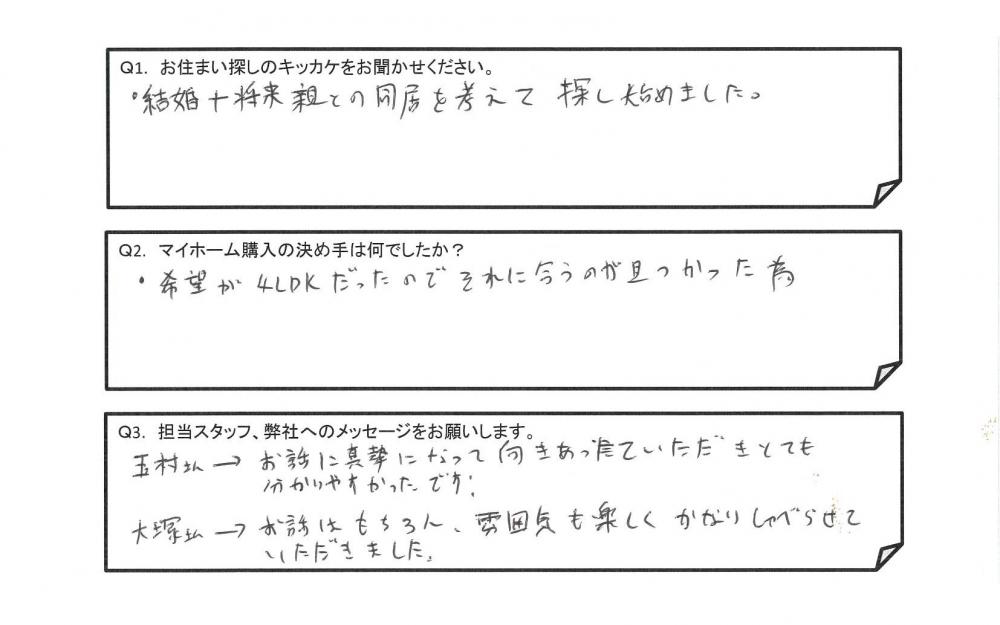 Q1. お住まい探しのキッカケをお聞かせください。
・結婚+将来親との同居を考えて 探し始めました。
Q2. マイホーム購入の決め手は何でしたか？
・希望が 4LDKだったので それに合うのが見つかった為
Q3. 担当スタッフ、弊社へのメッセージをお願いします。
玉村さん→ お話に真摯になって 向きあっ ていただきとても
分かりやすかったです!
大塚さん→ お話はもちろん、雰囲気も楽しく かなりしゃべらせて
いただきました。